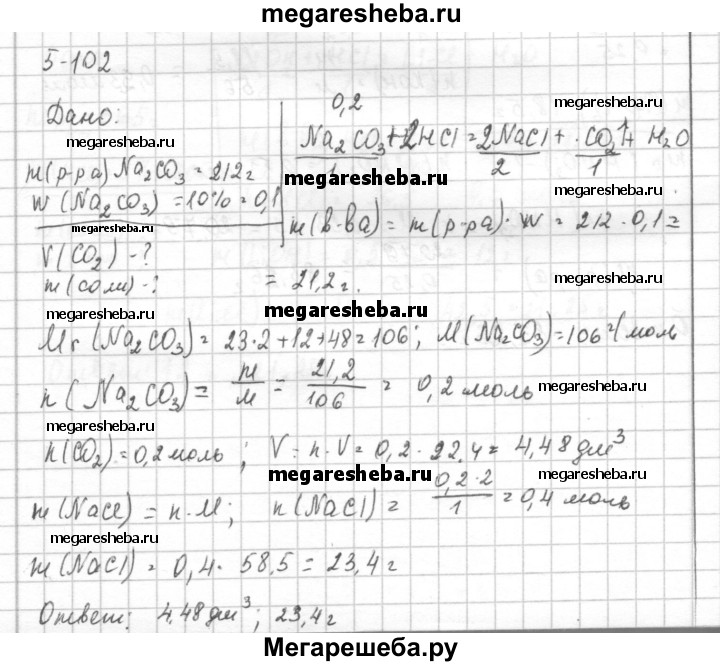 megaresheba.ru
5-102
Дано:
m(р-ра) Na₂CO₃ = 212 г
w (Na₂CO₃) = 10% = 0,1
V(CO₂) - ?
m(соли) - ?
0,2
Na₂CO₃ + 2HCl = 2NaCl + CO₂↑ + H₂O
1 2 1
m(в-ва) = m(р-ра) · w = 212 · 0,1 =
= 21,2 г.
Mr (Na₂CO₃) = 23·2+12+48 = 106; M(Na₂CO₃) = 106 г/моль
n(Na₂CO₃) = m/M = 21,2/106 = 0,2 моль
n(CO₂) = 0,2 моль; V = n·V = 0,2 · 22,4 = 4,48 дм³
m(NaCl) = n·M; n(NaCl) = 0,2·2/1 = 0,4 моль
m(NaCl) = 0,4 · 58,5 = 23,4 г
Ответ: 4,48 дм³; 23,4 г
megaresheba.ru
megaresheba.ru
megaresheba.ru
megaresheba.ru
megaresheba.ru
megaresheba.ru
megaresheba.ru
megaresheba.ru
megaresheba.ru
megaresheba.ru
megaresheba.ru
megaresheba.ru
megaresheba.ru
megaresheba.ru
Мегарешеба.ру